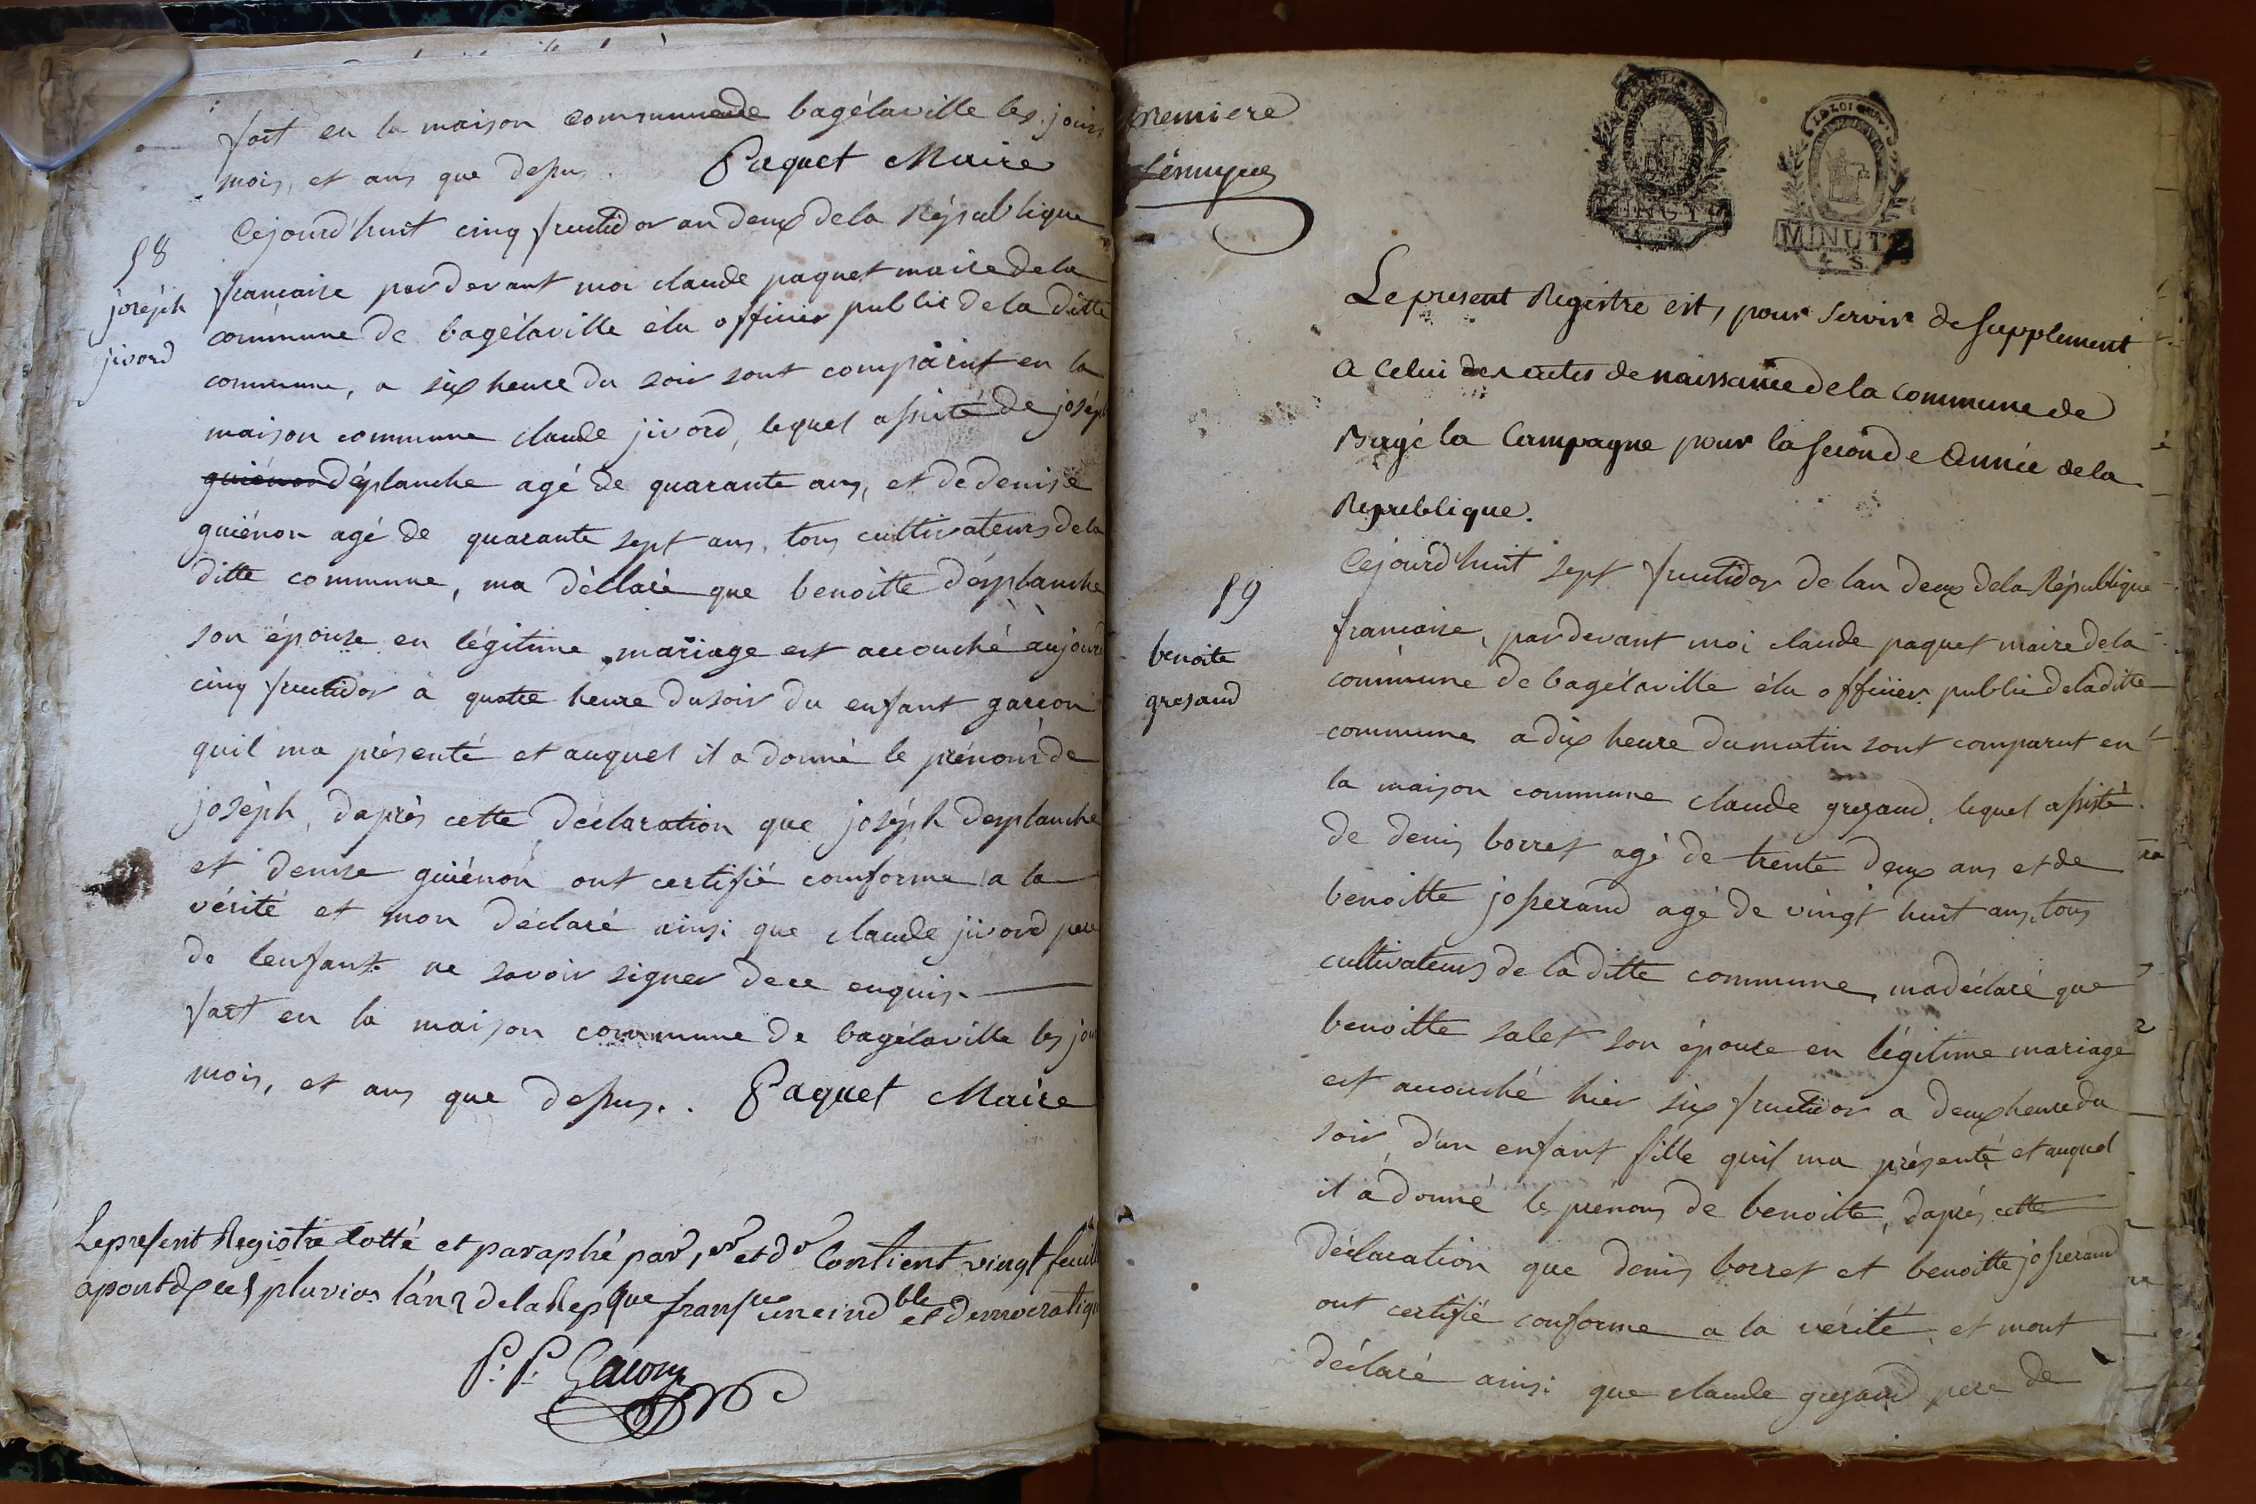 fait en la maison commune de bagélaville les jours
mois, et ans que dessus. Paquet Maire
58
joséph
jivord
Cejourd'huit cinq fructidor an deux de la République
francaise par devant moi claude paquet maire de la
commune de bagélaville élu officier public de la ditte
commune, a six heure du soir sont comparut en la
maison commune claude jivord, lequel assisté de joséph
guiénon désplanche agé de quarante ans, et de denise
guiénon agé de quarante sept ans, tous cultivateurs de la
ditte commune, ma déclaré que benoitte désplanche
son épouse en légitime mariage est accouché aujourd
cinq fructidor a quatre heure du soir du enfant garcon
quil ma présenté et auquel il a donné le prénom de
joséph, daprès cette déclaration que joséph desplanche
et denise guiénon ont certifié comforme a la
vérité et mon déclaré ainsi que claude jivord pere
de lenfant ne savoir signer de ce enquis
fait en la maison commune de bagélaville les jour
mois, et ans que dessus. Paquet Maire
Le present Registre Cotté et paraphé par, et dr Contient vingt feuill
apontdx ce 1 pluvios lan 2 dela Repque franse une ind ble et democratiqu
P. P. Gacon
premiere
MINUTE
4. S.
Le present Registre est, pour servir de supplement
a celui des actes de naissance de la commune de
Bagé la Campagne pour la seconde année de la
Republique.
59
benoite
gresaud
Cejourd'huit sept fructidor de lan deux de la République
francaise, par devant moi claude paquet maire de la
commune de bagélaville élu officier public de la ditte
commune a dix heure du matin sont comparut en
la maison commune claude gresaud, lequel assisté
de denis borret agé de trente deux ans et de
benoitte josserand agé de vingt huit ans, tous
cultivateurs de la ditte commune, ma déclaré que
benoitte salet son épouse en légitime mariage
est accouché hier six fructidor a deux heure du
soir, d'un enfant fille quil ma présenté et auquel
il a donné le prénom de benoitte, daprés cette
déclaration que denis borret et benoitte josserand
ont certifié conforme a la vérité et mont
déclaré ainsi que claude gresaud pere de